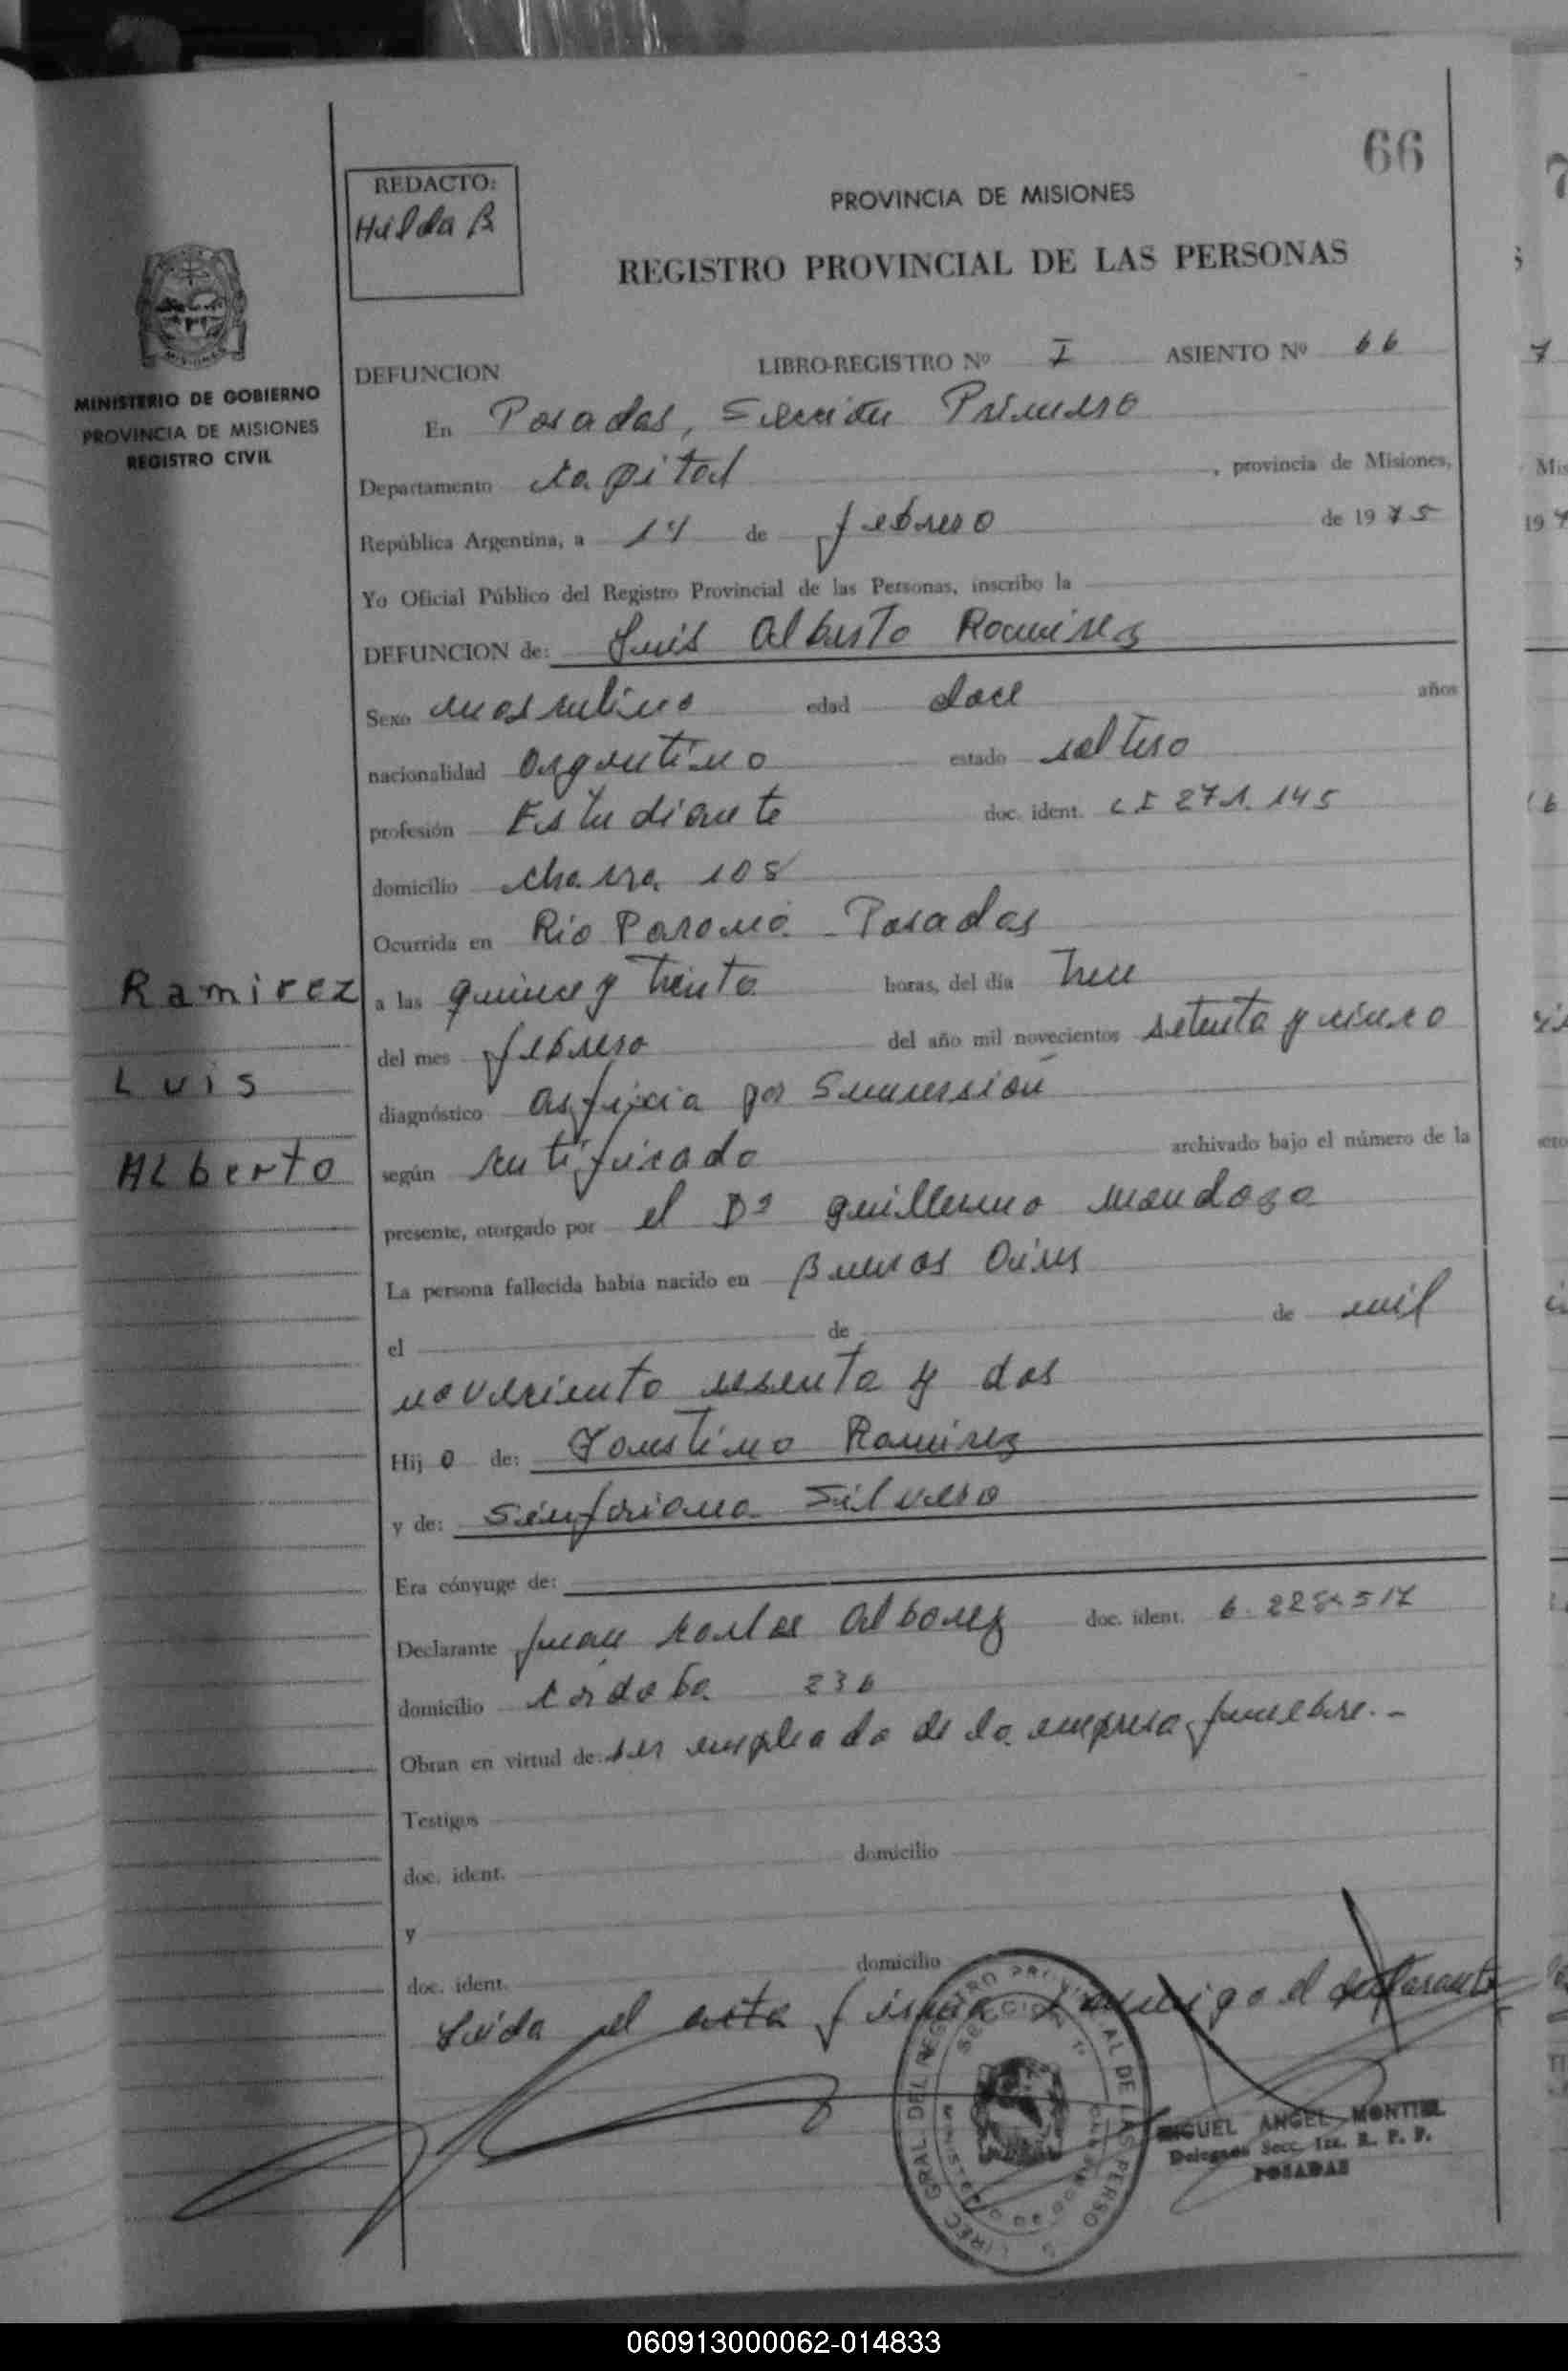 66
REDACTO:
Hilda B
PROVINCIA DE MISIONES
REGISTRO PROVINCIAL DE LAS PERSONAS
MINISTERIO DE GOBIERNO
PROVINCIA DE MISIONES
REGISTRO CIVIL
DEFUNCION LIBRO-REGISTRO Nº I ASIENTO Nº 66
En Posadas, Sección Primera
Departamento Capital, provincia de Misiones,
República Argentina, a 14 de febrero de 1975
Yo Oficial Público del Registro Provincial de las Personas, inscribo la
DEFUNCION de: Luis Alberto Ramirez
Sexo masculino edad doce años
nacionalidad argentino estado soltero
profesión Estudiante doc. ident. C I 271.145
domicilio chacra 108
Ocurrida en Río Paraná - Posadas
Ramirez
a las quince y treinta horas, del día trece
del mes febrero del año mil novecientos setenta y cinco
Luis
diagnóstico asfixia por Sumersión
Alberto
según certificado archivado bajo el número de la
presente, otorgado por el Dr Guillermo Mendoza
La persona fallecida había nacido en Buenos Aires
el de de mil
noveciento sesenta y dos
Hijo de: Faustino Ramirez
y de: Sinforiana Silvero
Era cónyuge de:
Declarante Juan Carlos Alborez doc. ident. 6.228.517
domicilio Córdoba 236
Obran en virtud de: ser empleado de la empresa funebre.-
Testigos
doc. ident. domicilio
y
doc. ident. domicilio
Leída el acta firma conmigo el declarante
MIGUEL ANGEL MONTIEL
Delegado Secc. 1ra. R. P. P.
POSADAS
060913000062-014833